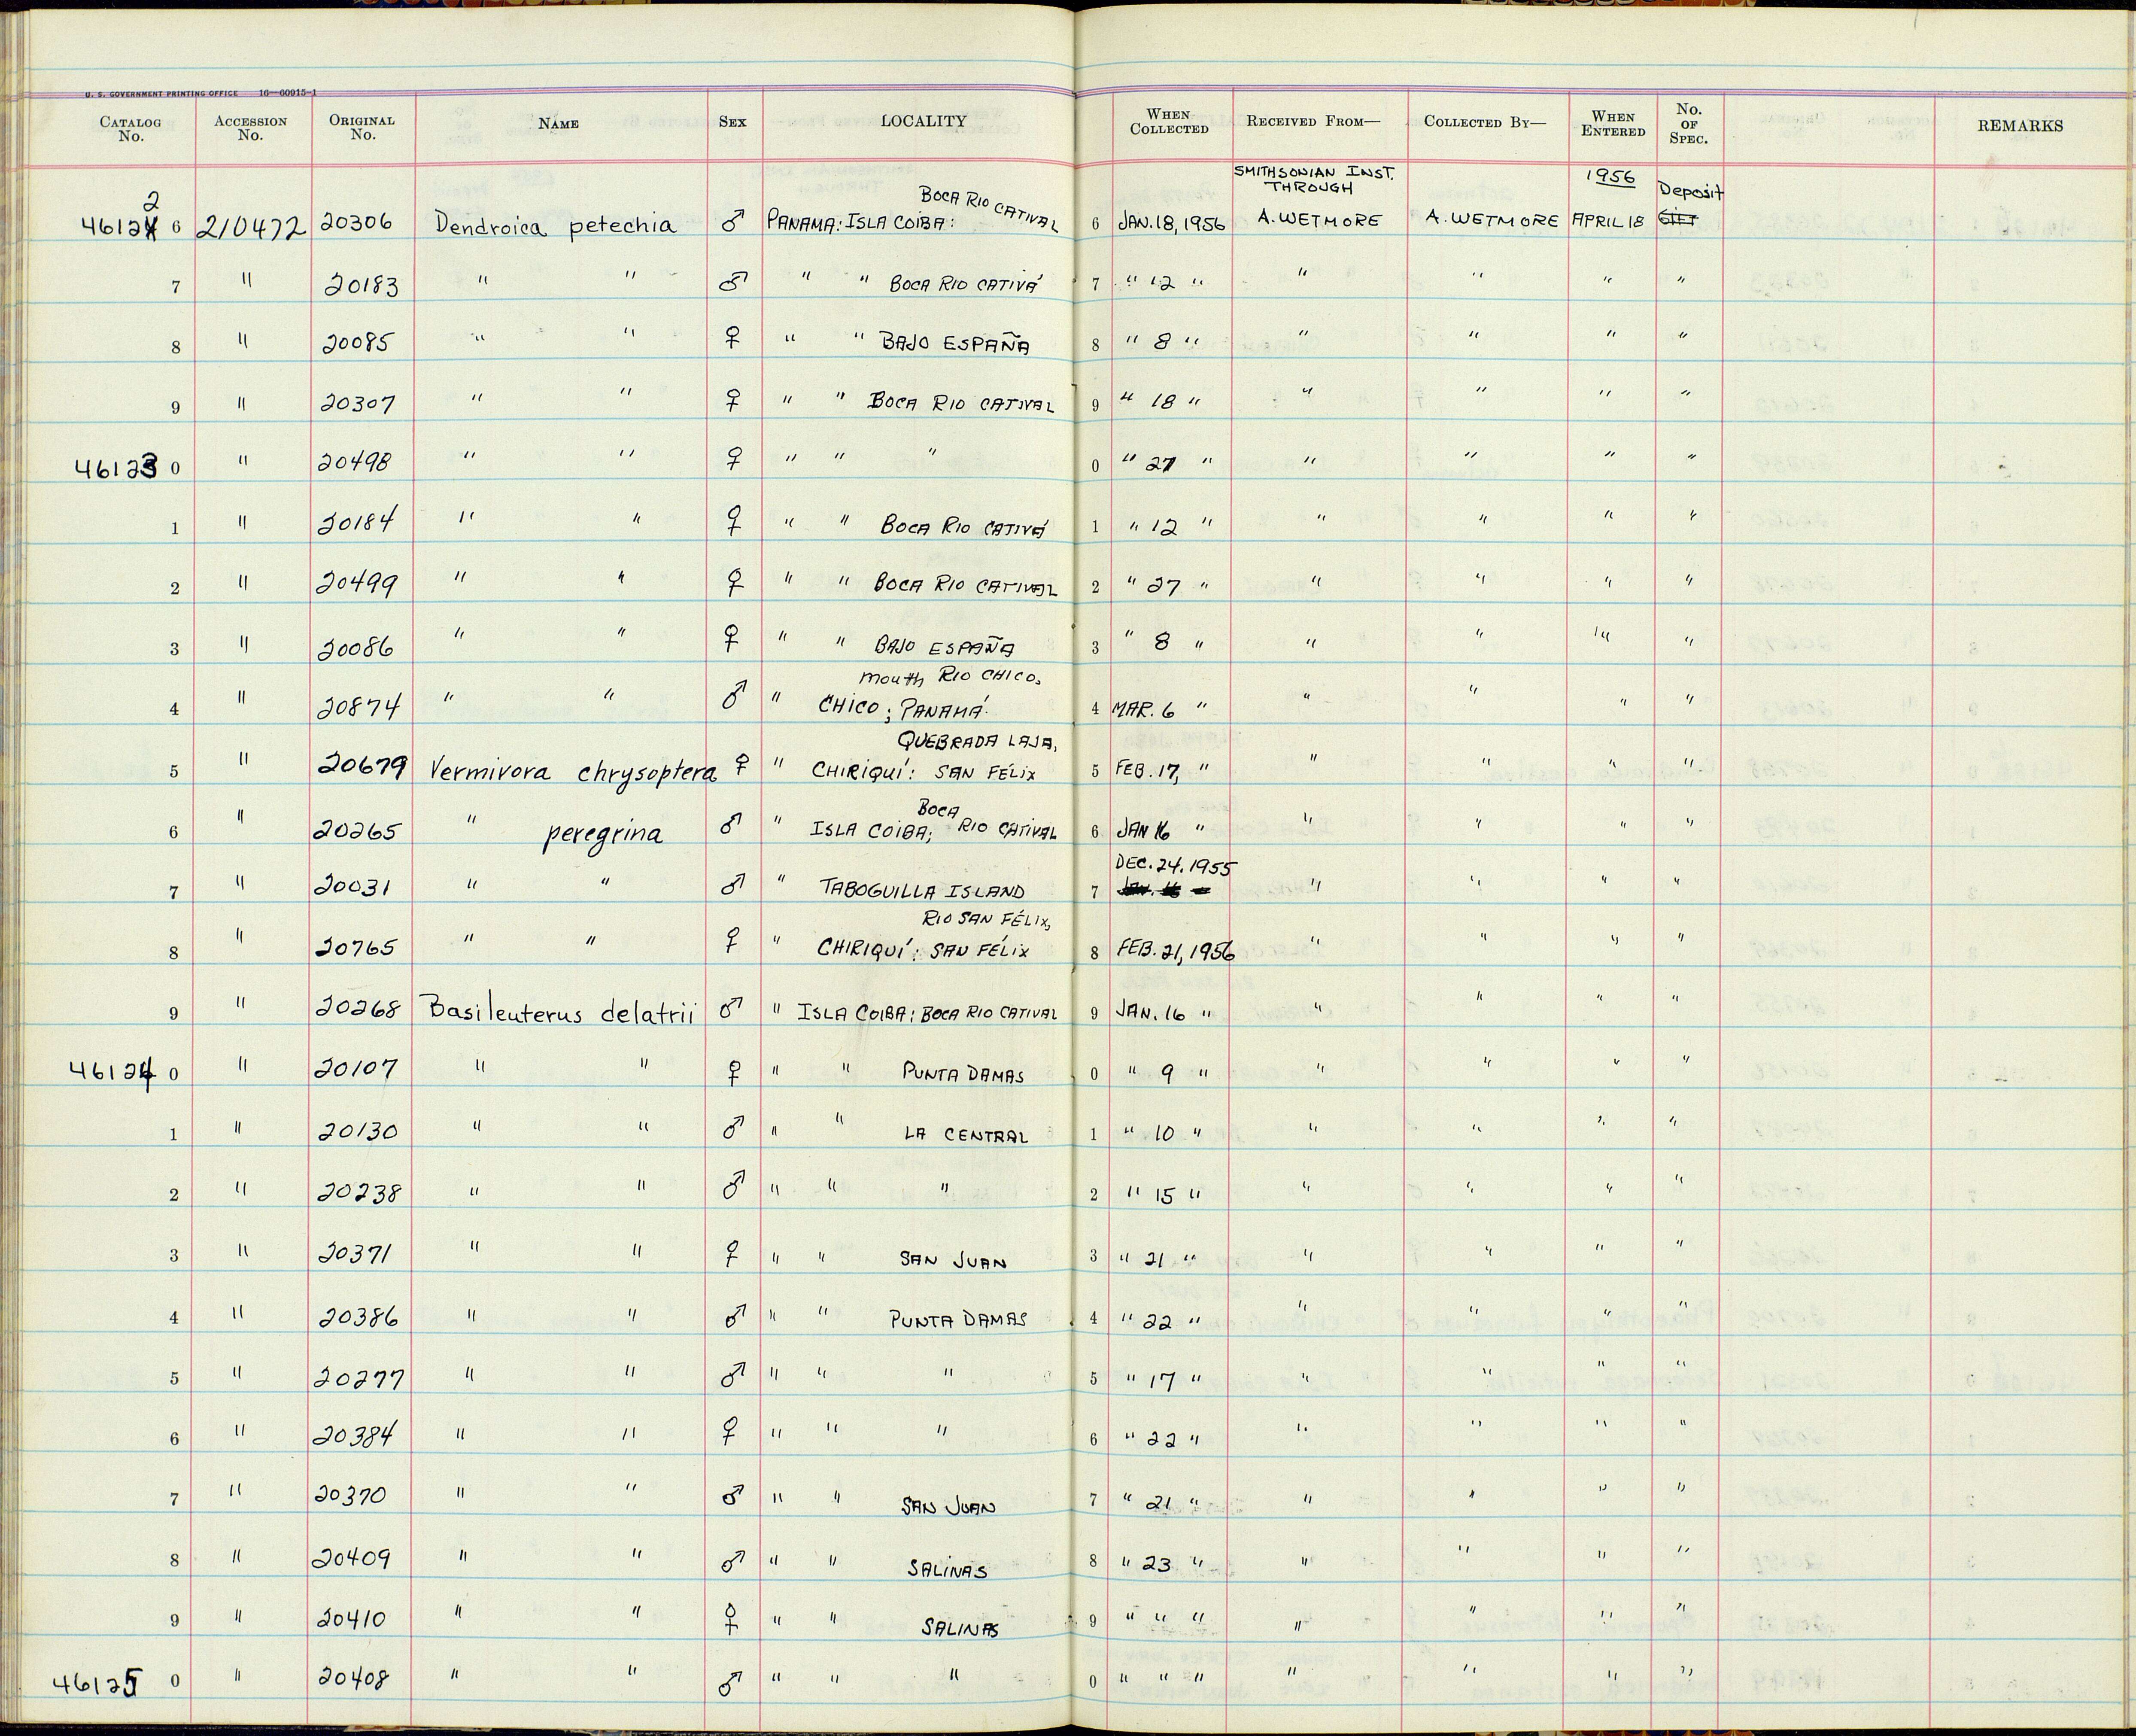 U. S. GOVERNMENT PRINTING OFFICE 16—60915-1
CATALOG No. ACCESSION No. ORIGINAL No. NAME SEX LOCALITY WHEN COLLECTED RECEIVED FROM— COLLECTED BY— WHEN ENTERED No. OF SPEC. REMARKS
2 BOCA RIO CATIVAL SMITHSONIAN INST. THROUGH 1956 Deposit
4612 6 210472 20306 Dendroica petechia ♂ PANAMA: ISLA COIBA: 6 JAN. 18, 1956 A. WETMORE A. WETMORE APRIL 18 GIFT
7 " 20183 " " ♂ " " BOCA RIO CATIVÁ 7 " 12 " " " " "
8 " 20085 " " ♀ " " BAJO ESPAÑA 8 " 8 " " " " "
9 " 20307 " " ♀ " " BOCA RIO CATIVAL 9 " 18 " " " " "
46123 0 " 20498 " " ♀ " " " 0 " 27 " " " " "
1 " 20184 " " ♀ " " BOCA RIO CATIVÁ 1 " 12 " " " " "
2 " 20499 " " ♀ " " BOCA RIO CATIVAL 2 " 27 " " " " "
3 " 20086 " " ♀ " " BAJO ESPAÑA 3 " 8 " " " " "
mouth RIO CHICO,
4 " 20874 " " ♂ " CHICO; PANAMÁ 4 MAR. 6 " " " " "
QUEBRADA LAJA,
5 " 20679 Vermivora chrysoptera ♀ " CHIRIQUÍ: SAN FÉLIX 5 FEB. 17, " " " " "
BOCA
6 " 20265 " peregrina ♂ " ISLA COIBA; RIO CATIVAL 6 JAN 16 " " " " "
DEC. 24, 1955
7 " 20031 " " ♂ " TABOGUILLA ISLAND 7 " " " "
RIO SAN FÉLIX,
8 " 20765 " " ♀ " CHIRIQUÍ: SAN FÉLIX 8 FEB. 21, 1956 " " " "
9 " 20268 Basileuterus delatrii ♂ " ISLA COIBA; BOCA RIO CATIVAL 9 JAN. 16 " " " " "
46124 0 " 20107 " " ♀ " " PUNTA DAMAS 0 " 9 " " " " "
1 " 20130 " " ♂ " " LA CENTRAL 1 " 10 " " " " "
2 " 20238 " " ♂ " " " 2 " 15 " " " " "
3 " 20371 " " ♀ " " SAN JUAN 3 " 21 " " " " "
4 " 20386 " " ♂ " " PUNTA DAMAS 4 " 22 " " " " "
5 " 20277 " " ♂ " " " 5 " 17 " " " " "
6 " 20384 " " ♀ " " " 6 " 22 " " " " "
7 " 20370 " " ♂ " " SAN JUAN 7 " 21 " " " " "
8 " 20409 " " ♂ " " SALINAS 8 " 23 " " " " "
9 " 20410 " " ♀ " " SALINAS 9 " " " " " " "
46125 0 " 20408 " " ♂ " " " 0 " " " " " " "